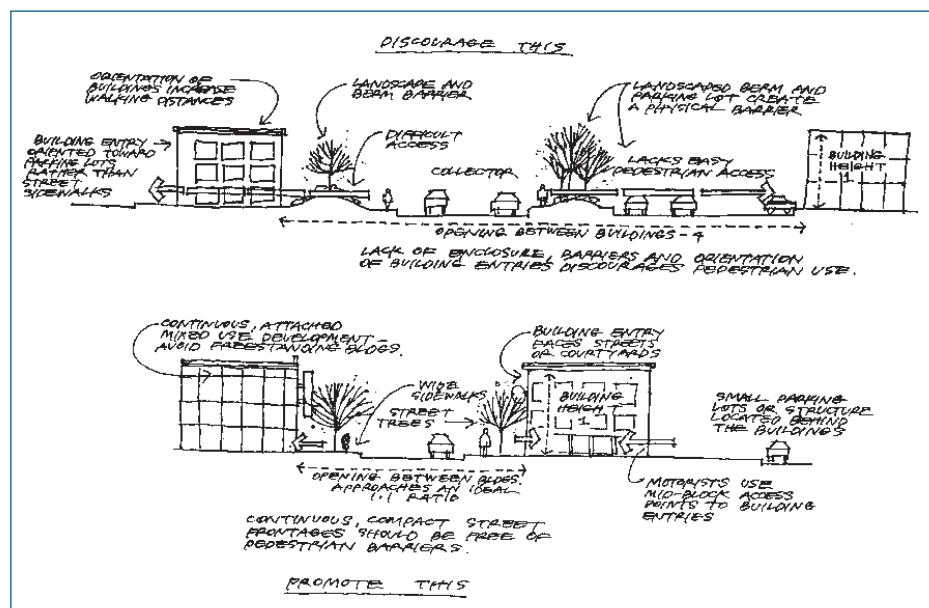 DISCOURAGE THIS
ORIENTATION OF
BUILDINGS INCREASE
WALKING DISTANCES
LANDSCAPE AND
BERM BARRIER
LANDSCAPED BERM AND
PARKING LOT CREATE
A PHYSICAL BARRIER
BUILDING ENTRY
ORIENTED TOWARD
PARKING LOTS
RATHER THAN
STREET
SIDEWALKS
DIFFICULT
ACCESS
COLLECTOR
LACKS EASY
PEDESTRIAN ACCESS
BUILDING
HEIGHT
1
OPENING BETWEEN BUILDINGS - 4
LACK OF ENCLOSURE, BARRIERS AND ORIENTATION
OF BUILDING ENTRIES DISCOURAGES PEDESTRIAN USE.
CONTINUOUS, ATTACHED
MIXED USE DEVELOPMENT -
AVOID FREESTANDING BLDGS.
BUILDING ENTRY
FACES STREETS
OR COURTYARDS
WIDE
SIDEWALKS
STREET
TREES
BUILDING
HEIGHT
1
SMALL PARKING
LOTS OR STRUCTURE
LOCATED BEHIND
THE BUILDINGS
OPENING BETWEEN BLDGS.
APPROACHES AN IDEAL
1:1 RATIO
MOTORISTS USE
MID-BLOCK ACCESS
POINTS TO BUILDING
ENTRIES
CONTINUOUS, COMPACT STREET
FRONTAGES SHOULD BE FREE OF
PEDESTRIAN BARRIERS.
PROMOTE THIS